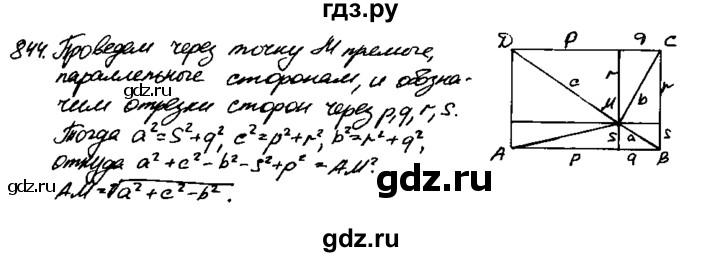 гдз.ру
844. Проведем через точку M прямые,
параллельные сторонам, и обозна-
gdz.ru
чим отрезки сторон через p, q, r, s.
Тогда a² = s² + q², c² = p² + r², b² = r² + q²,
откуда a² + c² - b² - s² + p² = AM².
gdz.ru
AM = √a² + c² - b².
gdz.ru
D p q C
c r b r
M
s a s
A p q B
gdz.ru
gdz.ru